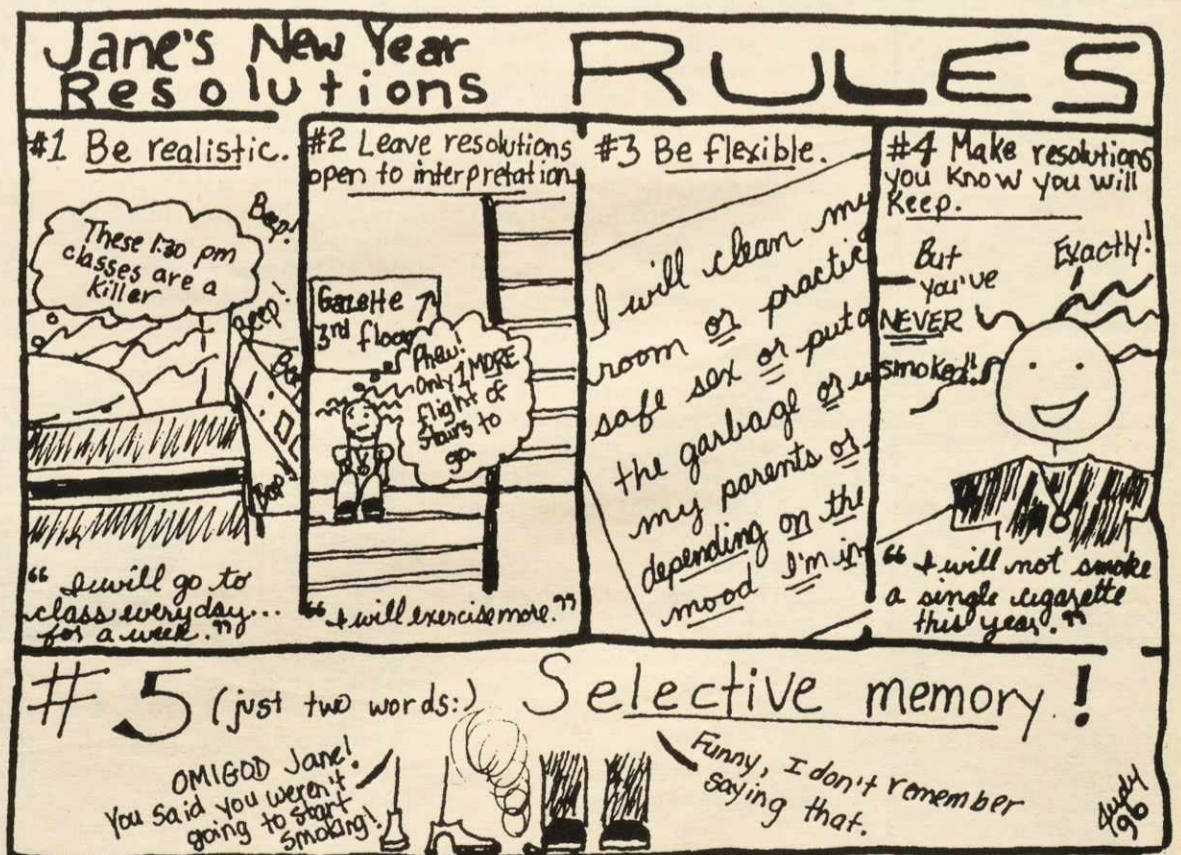 Jane's New Year
Resolutions
RULES
#1 Be realistic.
These 1:30 pm
classes are a
killer
Beep!
Beep!
Bop
Bop!
“ I will go to
class everyday...
for a week. ”
#2 Leave resolutions
open to interpretation.
Gazette
3rd floor
Phew!
Only 1 MORE
flight of
stairs to
go.
“ I will exercise more. ”
#3 Be flexible.
I will clean my
room or practic
safe sex or put o
the garbage or
my parents or
depending on the
mood I'm in
#4 Make resolutions
you know you will
Keep.
But
you've
NEVER
smoked!!
Exactly!
“ I will not smoke
a single cigarette
this year. ”
#5 (just two words:) Selective memory!
OMIGOD Jane!
You said you weren't
going to start
smoking!
Funny, I don't remember
saying that.
Judy
96